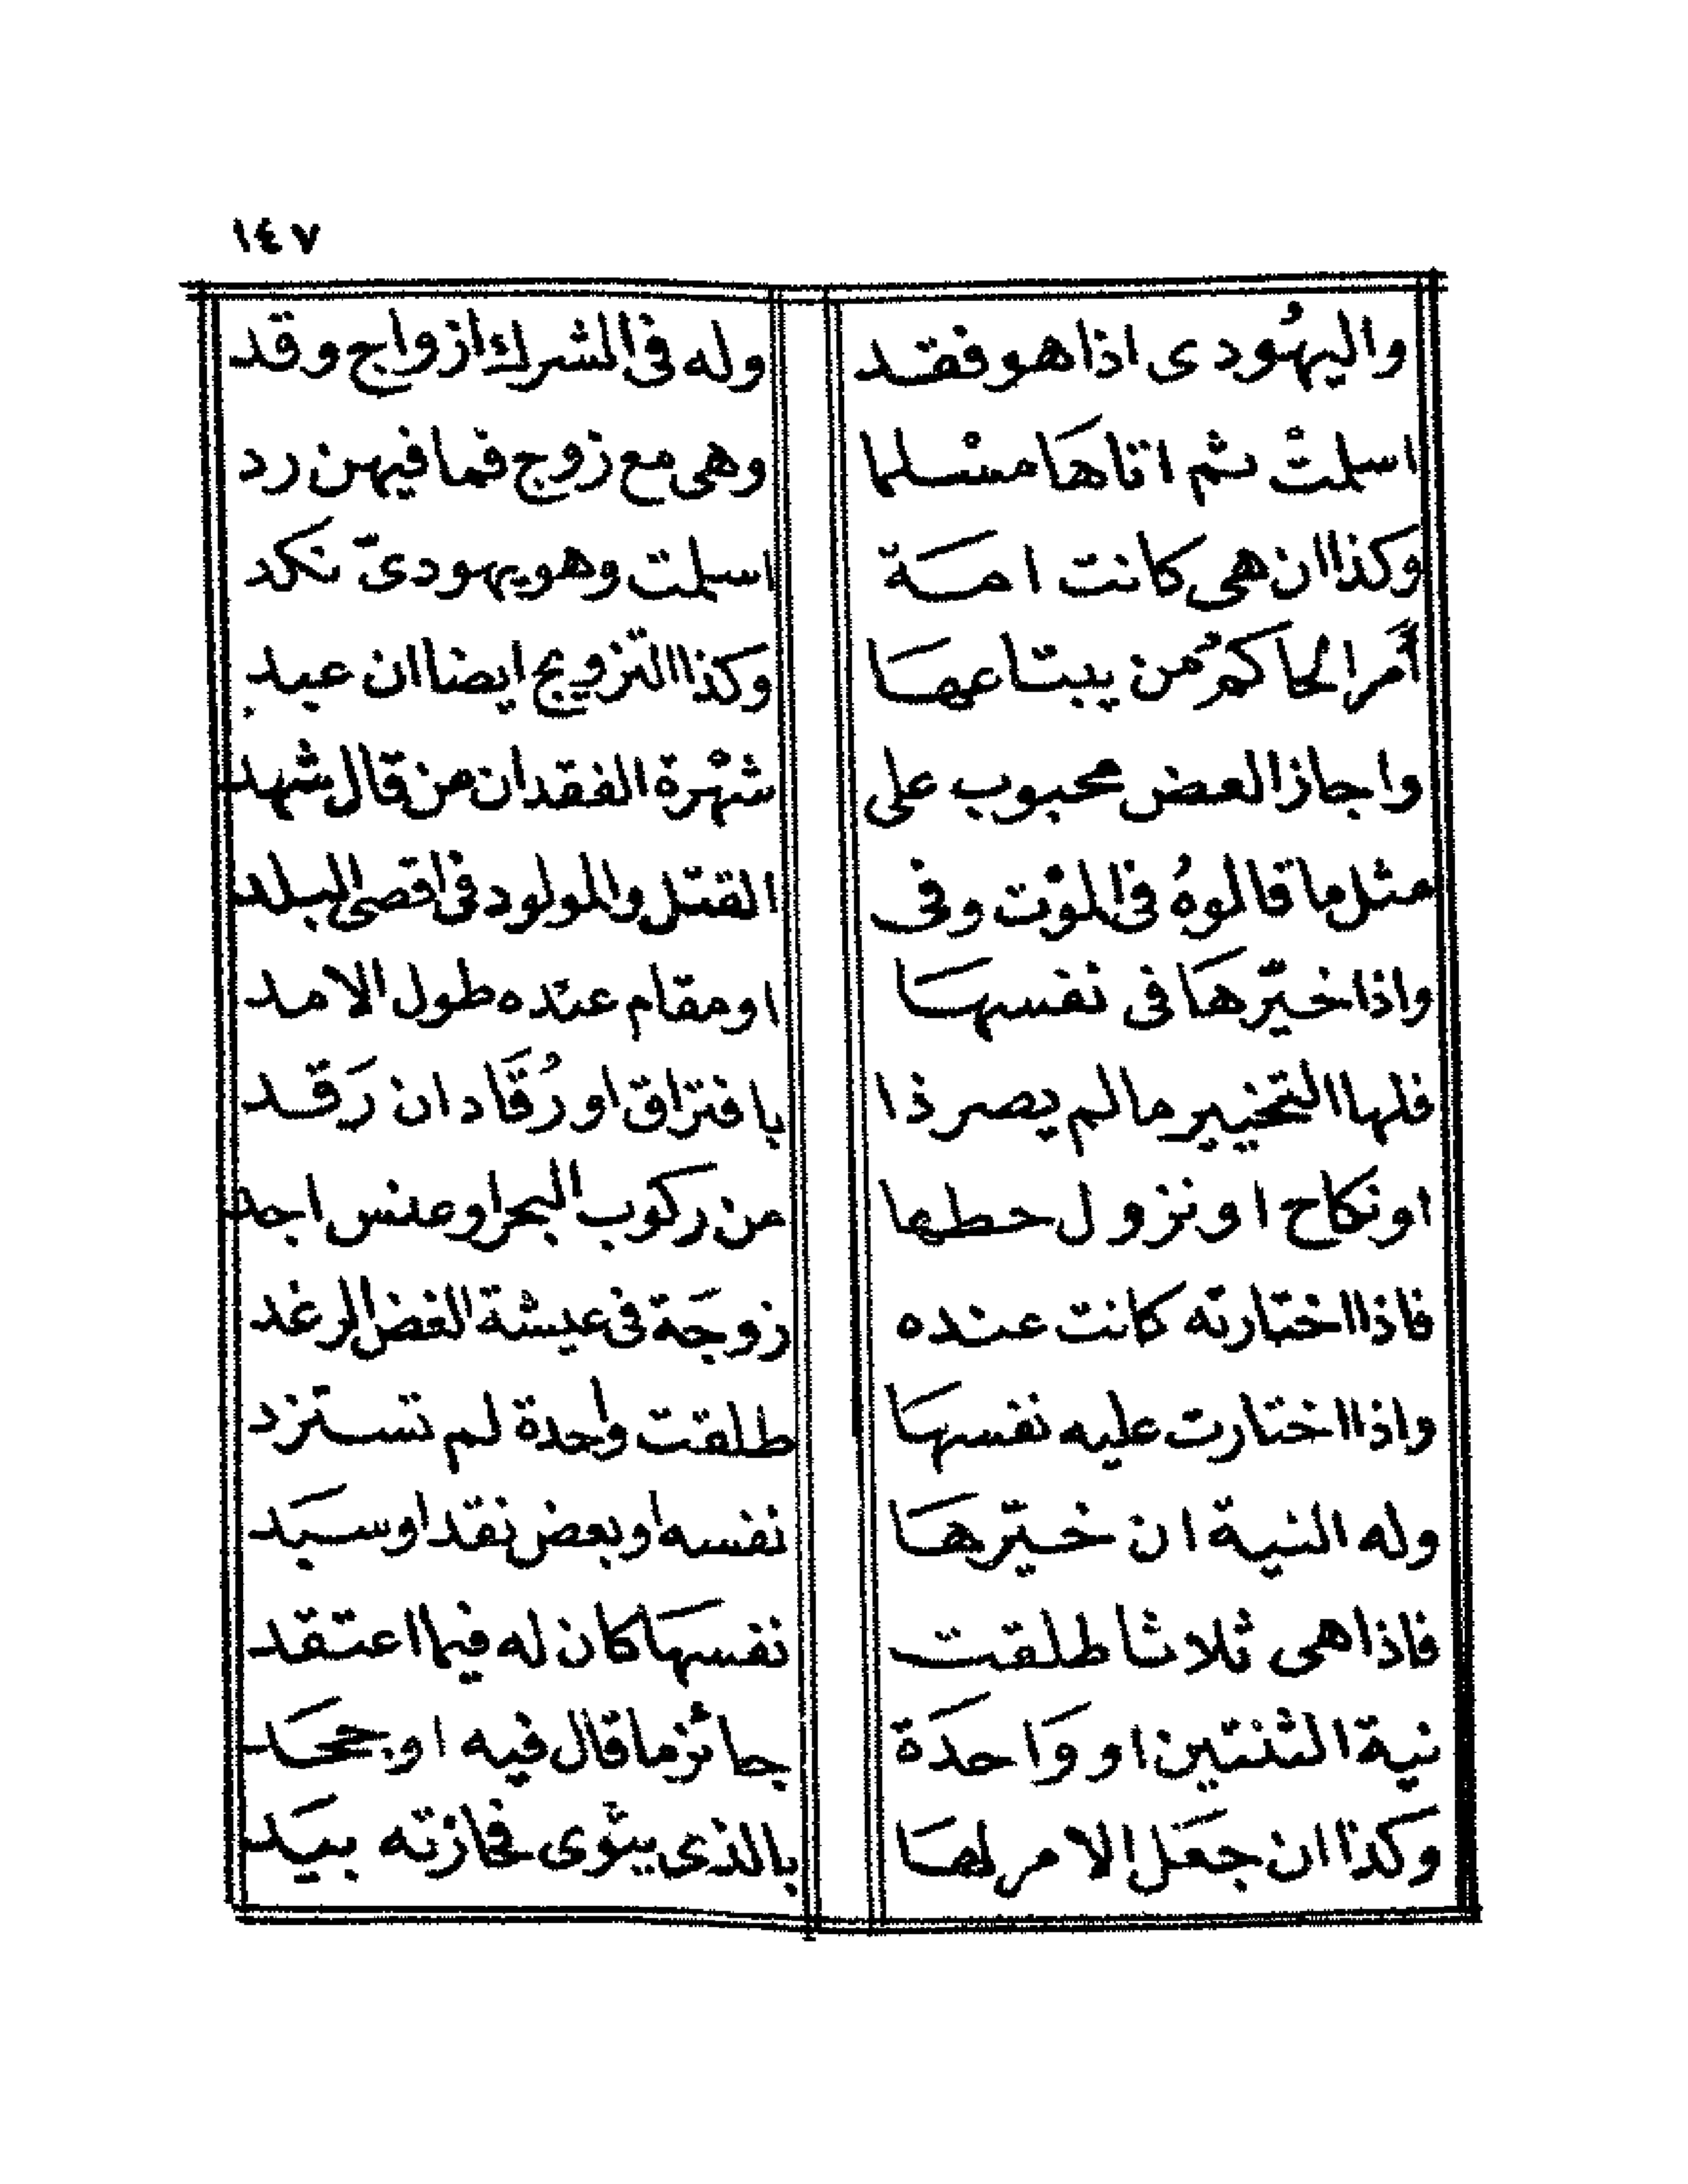 ١٤٧
واليهُودى اذا هو فقد وله فى الشرك ازواج وقد
اسلمتْ ثم اتاهَا مسْلما وهى مع زوج فما فيهن رد
وكذا ان هى كانت امَة اسلمت وهو يهودىّ نكد
أمَر الحاكمُ من يبتاعهَا وكذا التزويج ايضا ان عبد
واجاز العض محبوب على شهْرة الفقدان من قال شهد
مثل ما قالوهُ فى الموْت وفى القتل والمولود فى اقصى البلد
واذا خيّرهَا فى نفسهَا او مقام عنده طول الامد
فلها التخيير ما لم يصر ذا بافتراق او رُقَاد ان رَقد
او نكاح او نزول حطها من ركوب البحر او عنس اجد
فاذا اختارته كانت عنده زوجَة فى عيشة الغض الرغد
واذا اختارت عليه نفسهَا طلقت واحدة لم تستزد
وله النية ان خيّرهَا نفسه او بعض نقد او سبَد
فاذا هى ثلاثا طلقت نفسهَا كان له فيما اعتقد
نية الثنتين او وَاحدَة جائز ما قال فيه او جحَد
وكذا ان جعَل الامر لهَا بالذى ينْوى فجازته بيَد